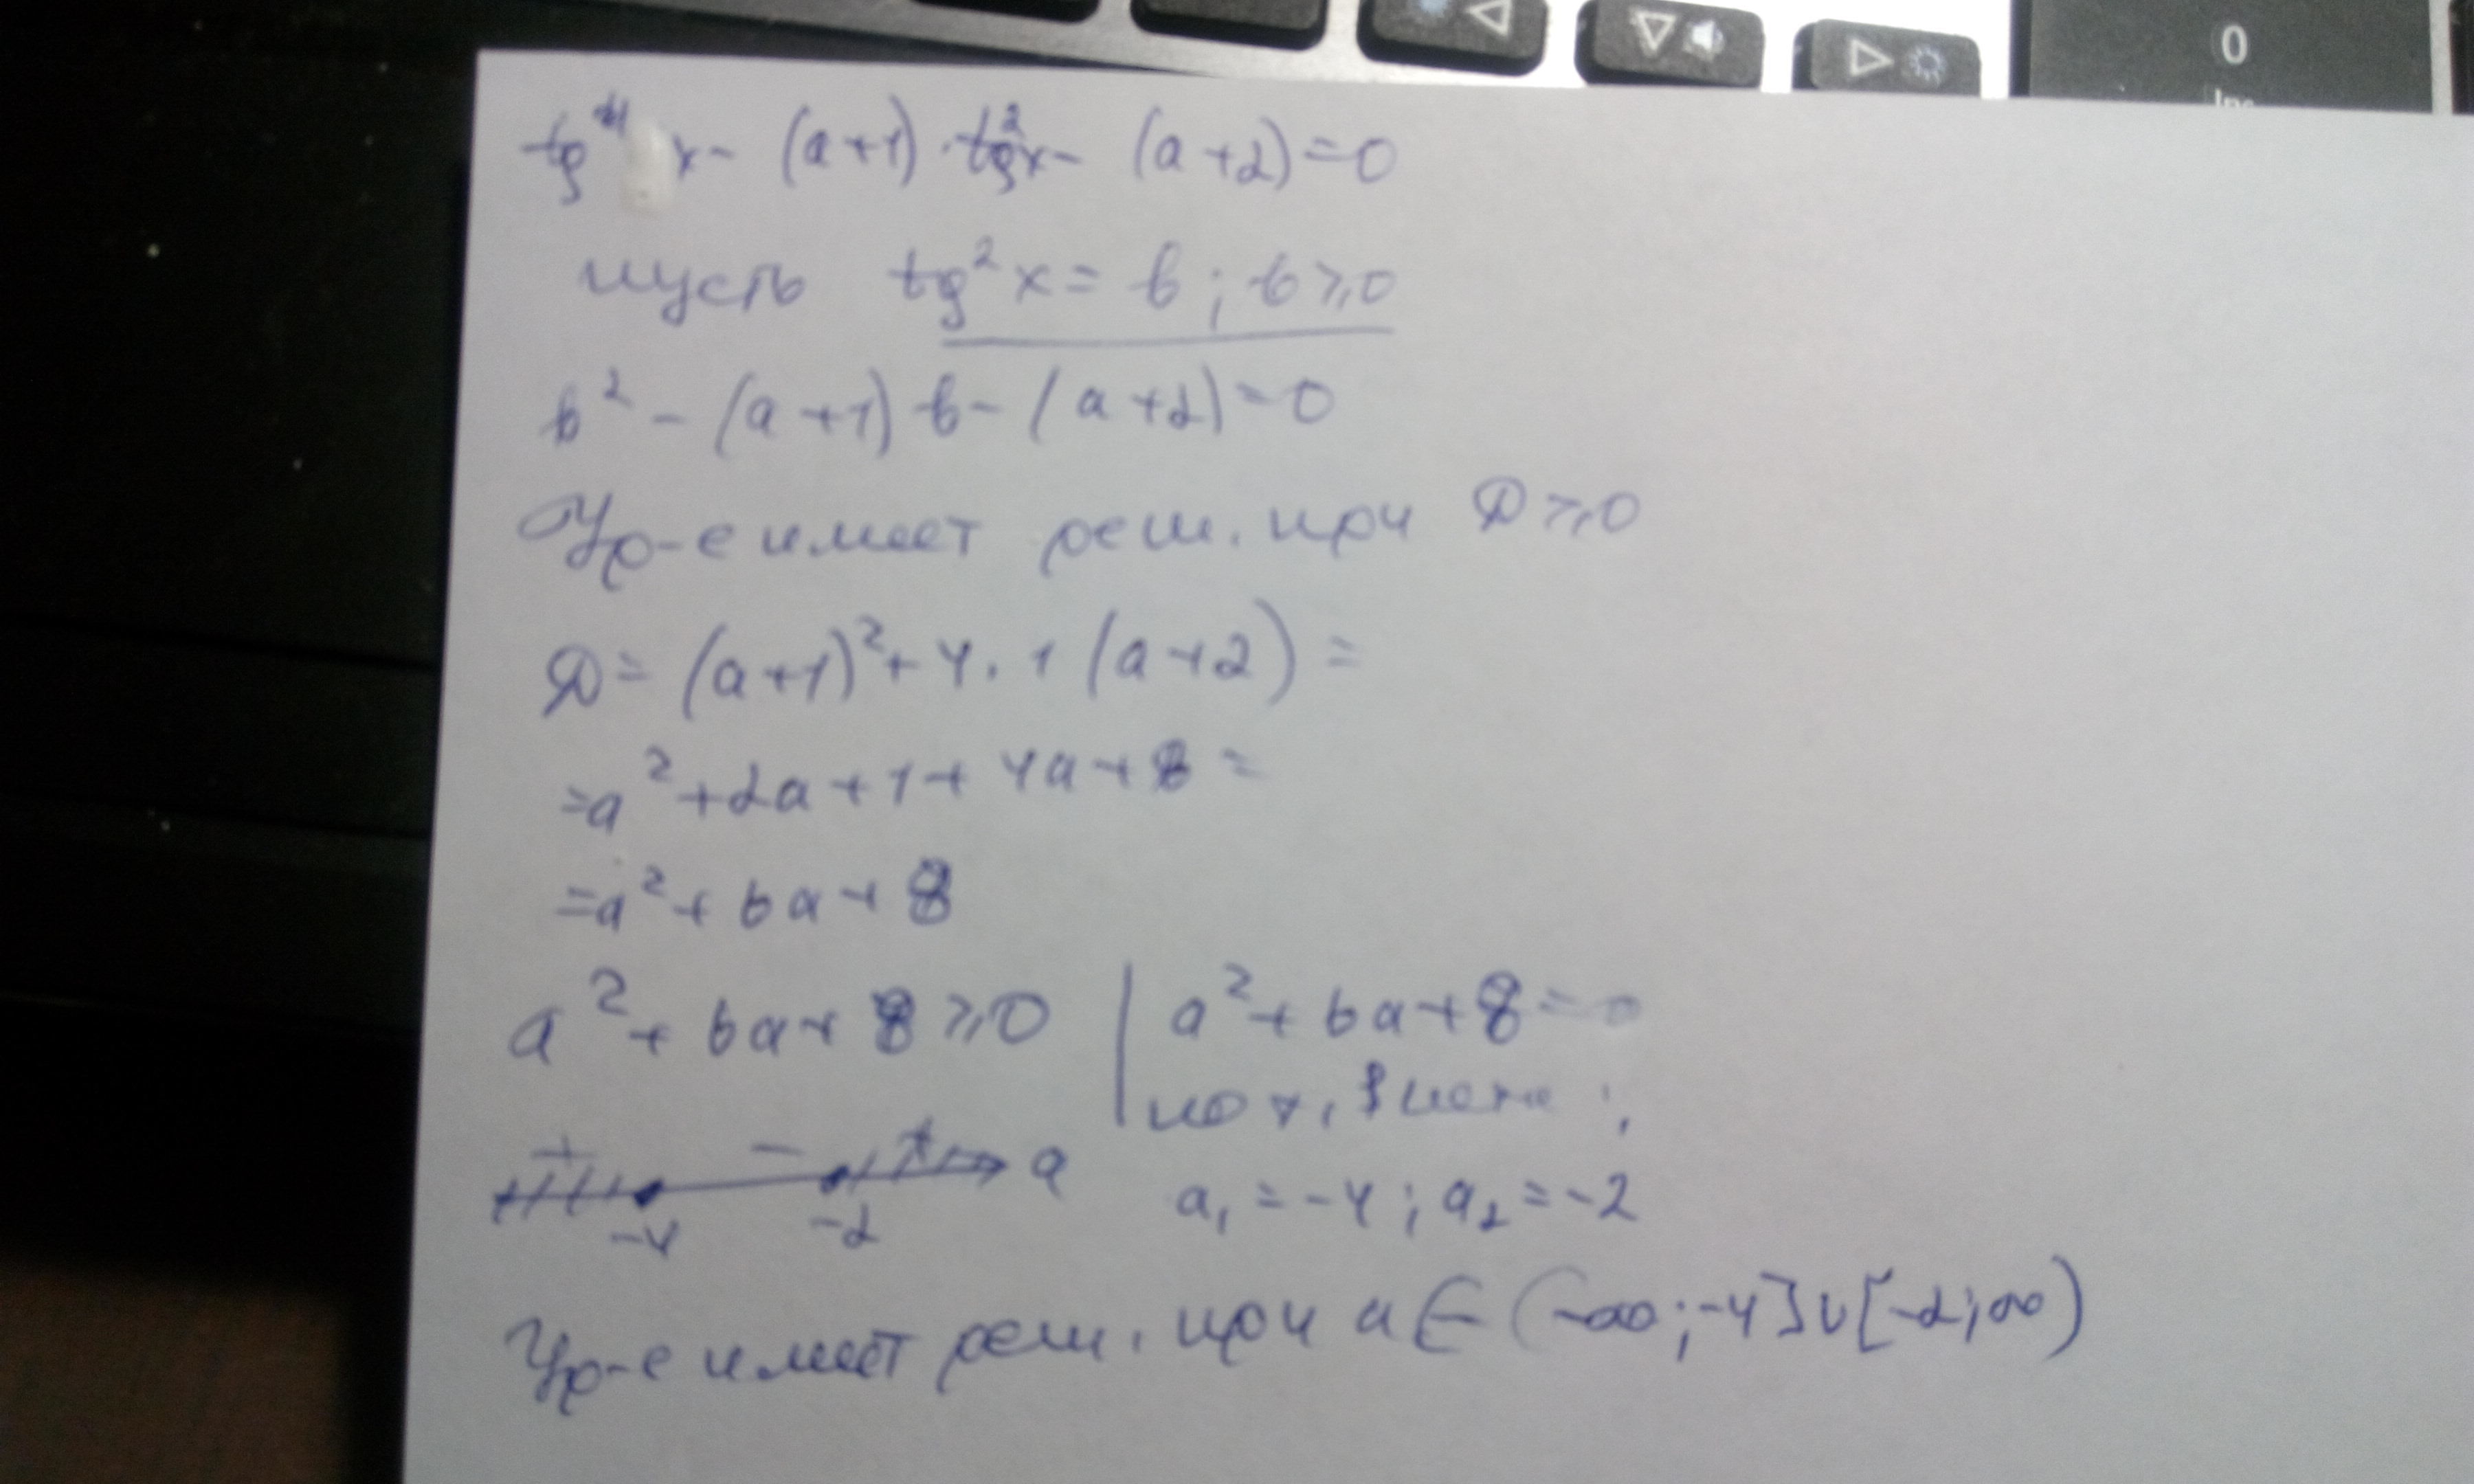 0
Ins
tg⁴ x - (a+1)·tg²x - (a+2)=0
пусть tg²x = b; b⩾0
b² - (a+1)b - (a+2)=0
Ур-е имеет реш. при D⩾0
D = (a+1)²+4·1(a+2)=
=a²+2a+1+4a+8=
=a²+6a+8
a²+6a+8⩾0 | a²+6a+8=0
по т. Виета:
+ - + a
-4 -2 a₁=-4; a₂=-2
Ур-е имеет реш. при a∈(-∞;-4]∪[-2;∞)